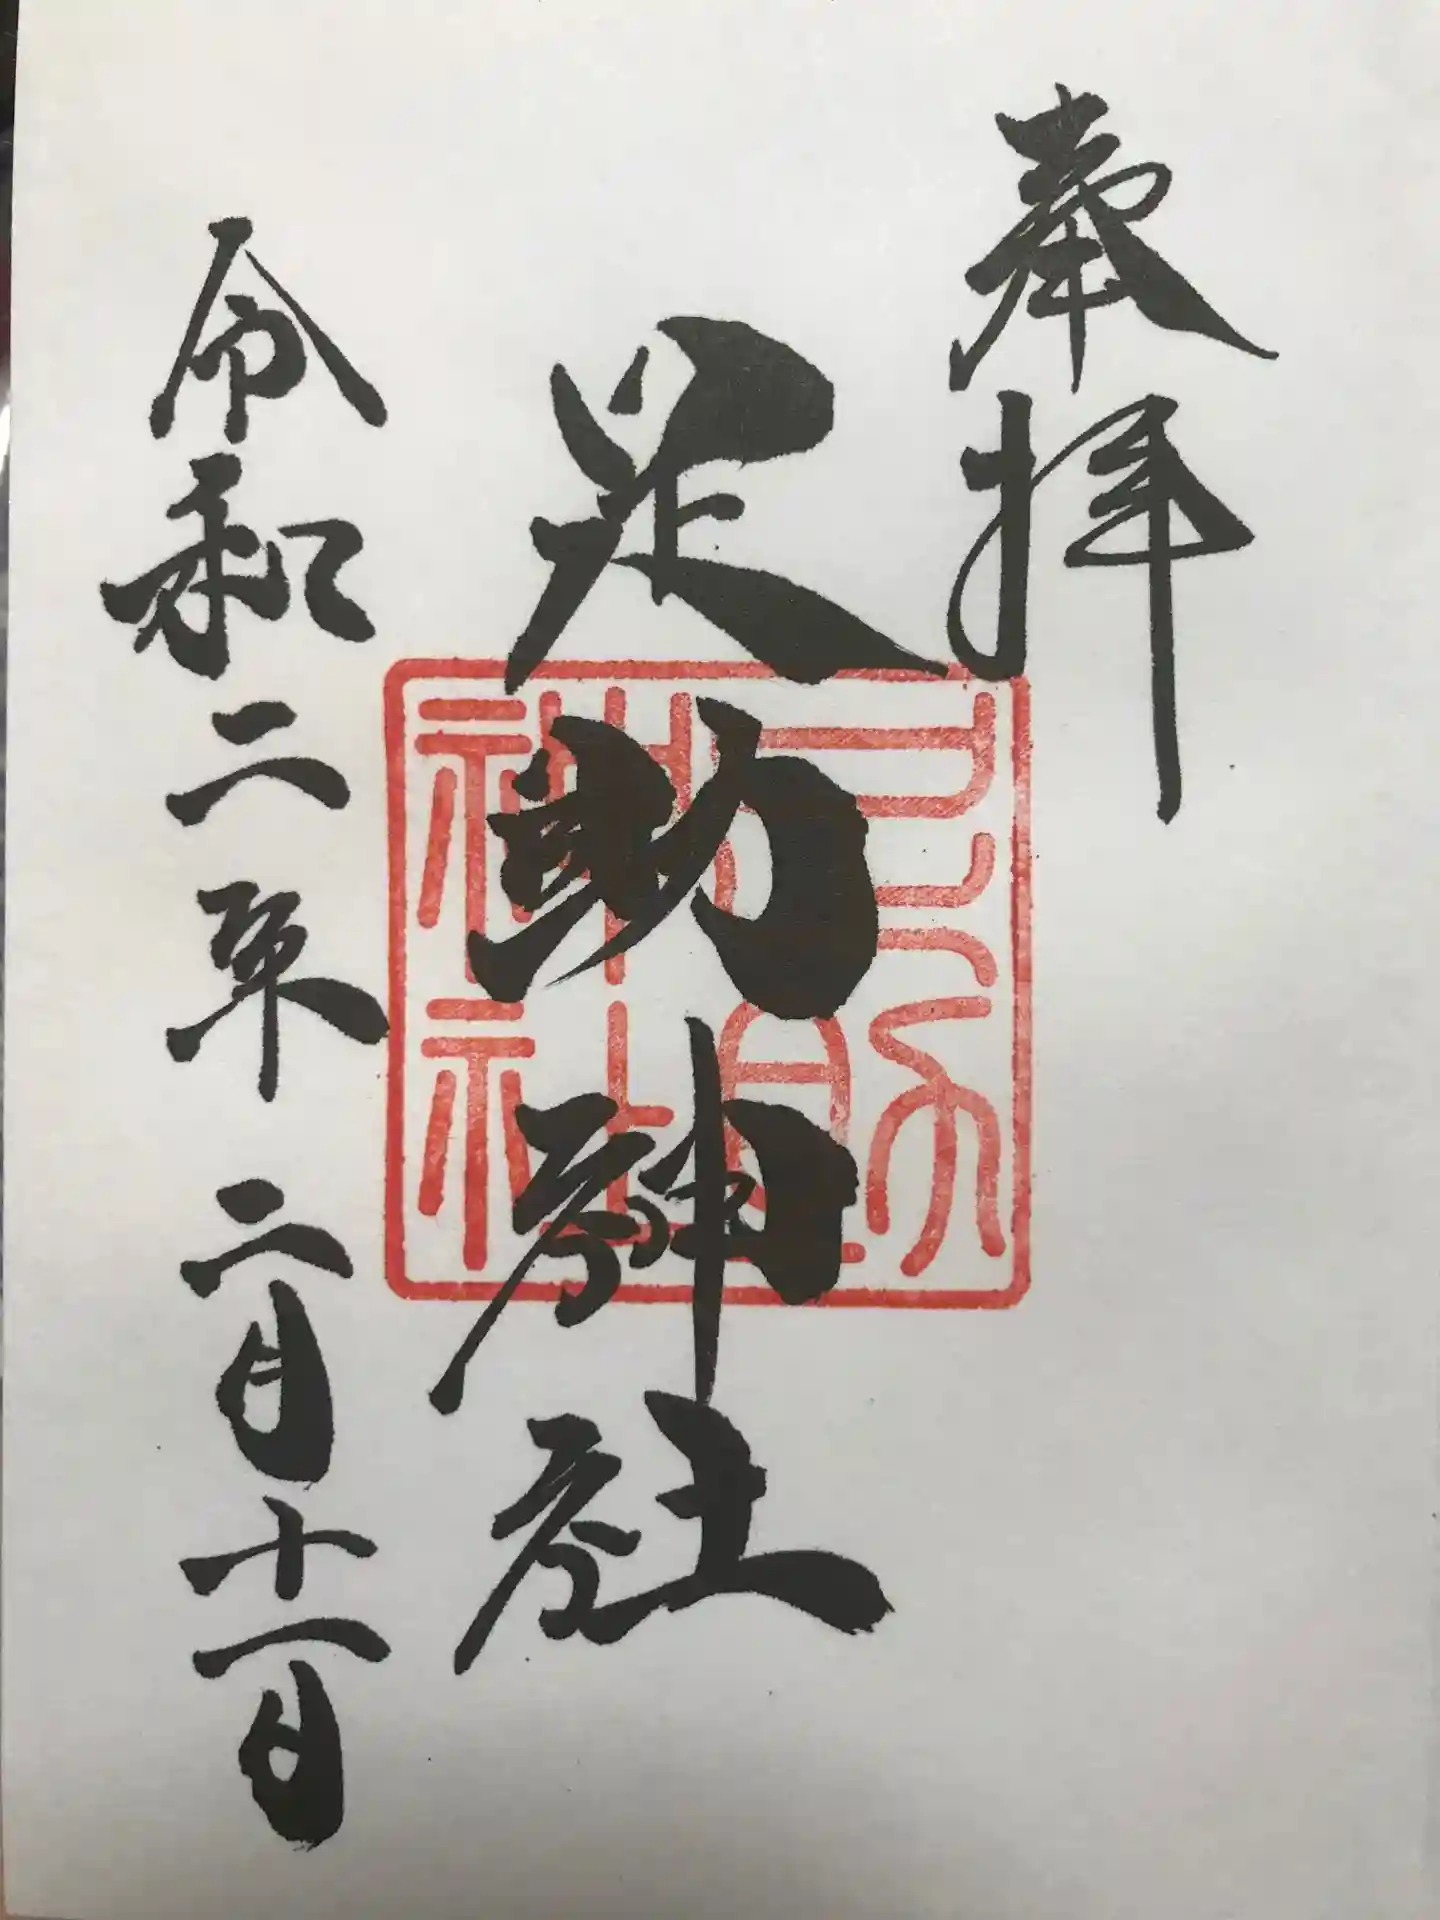 奉拝
足助神社
令和二年二月十一日
足助
神社